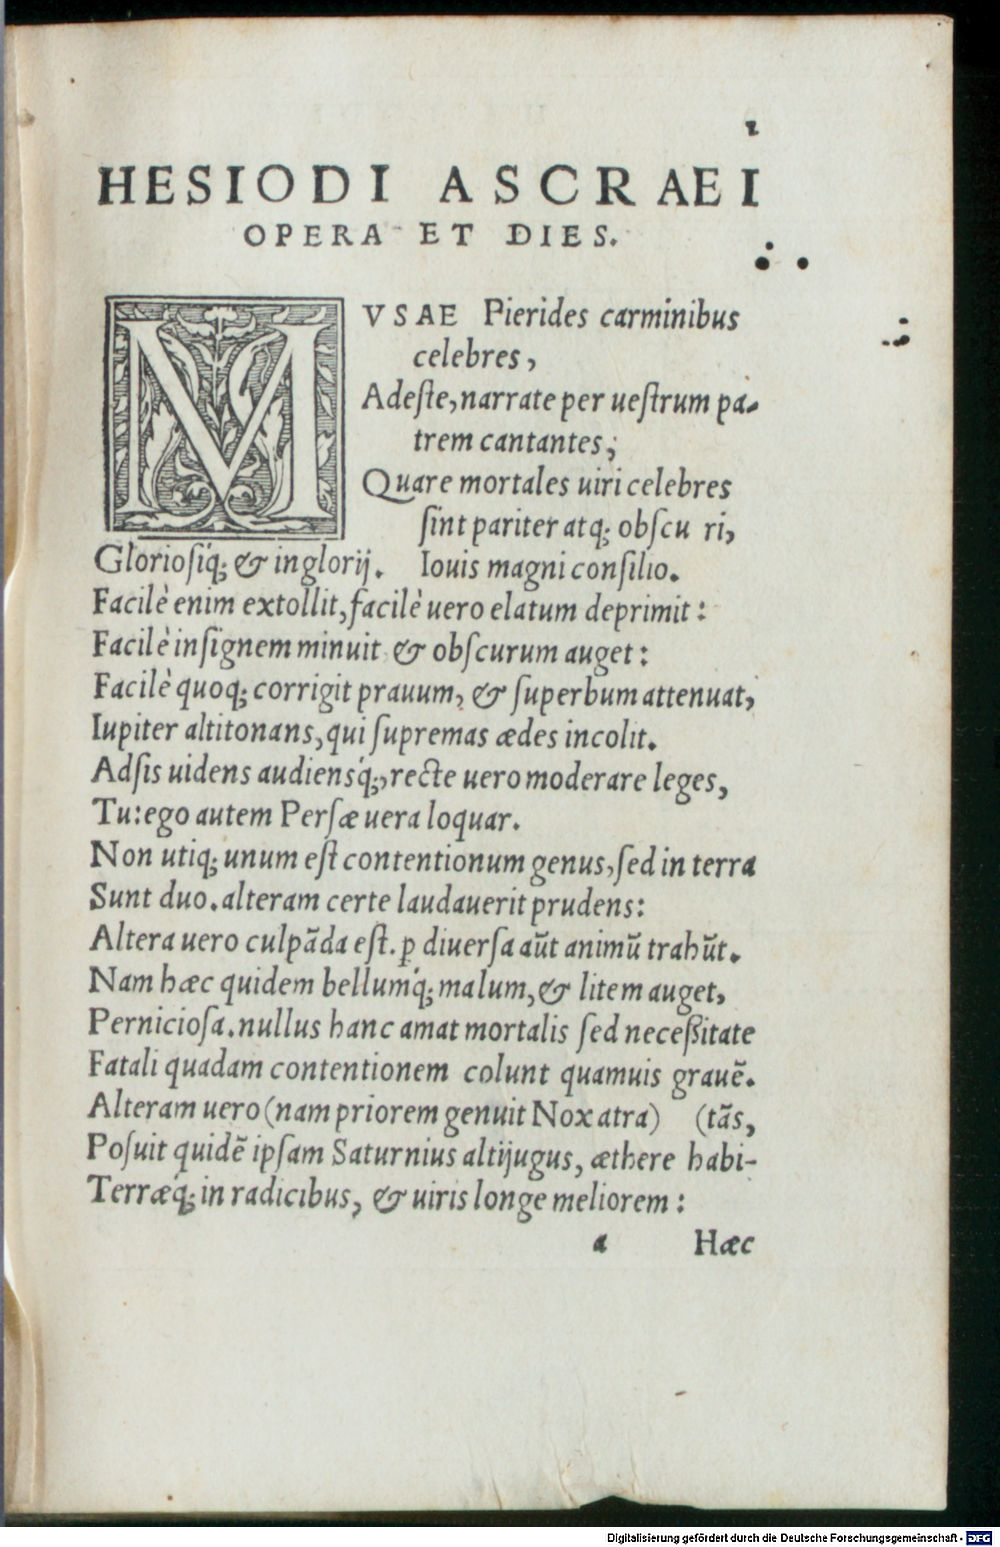 1
HESIODI ASCRAEI
OPERA ET DIES.
MVSAE Pierides carminibus
celebres,
Adeſte, narrate per ueſtrum pa-
trem cantantes;
Quare mortales uiri celebres
ſint pariter atq; obſcu ri,
Glorioſiq́; & inglorij. Iouis magni conſilio.
Facilè enim extollit, facilè uero elatum deprimit:
Facilè inſignem minuit & obſcurum auget:
Facilè quoq; corrigit prauum, & ſuperbum attenuat,
Iupiter altitonans, qui ſupremas ædes incolit.
Adſis uidens audiensq́;, recte uero moderare leges,
Tu: ego autem Perſæ uera loquar.
Non utiq; unum eſt contentionum genus, ſed in terra
Sunt duo. alteram certe laudauerit prudens:
Altera uero culpãda eſt. ꝑ diuerſa aũt animũ trahũt.
Nam hæc quidem bellumq́; malum, & litem auget,
Pernicioſa. nullus hanc amat mortalis ſed neceßitate
Fatali quadam contentionem colunt quamuis grauẽ.
Alteram uero (nam priorem genuit Nox atra) (tãs,
Poſuit quidẽ ipſam Saturnius altijugus, æthere habi-
Terræq́; in radicibus, & uiris longe meliorem:
a Hæc
Digitalisierung gefördert durch die Deutsche Forschungsgemeinschaft - DFG